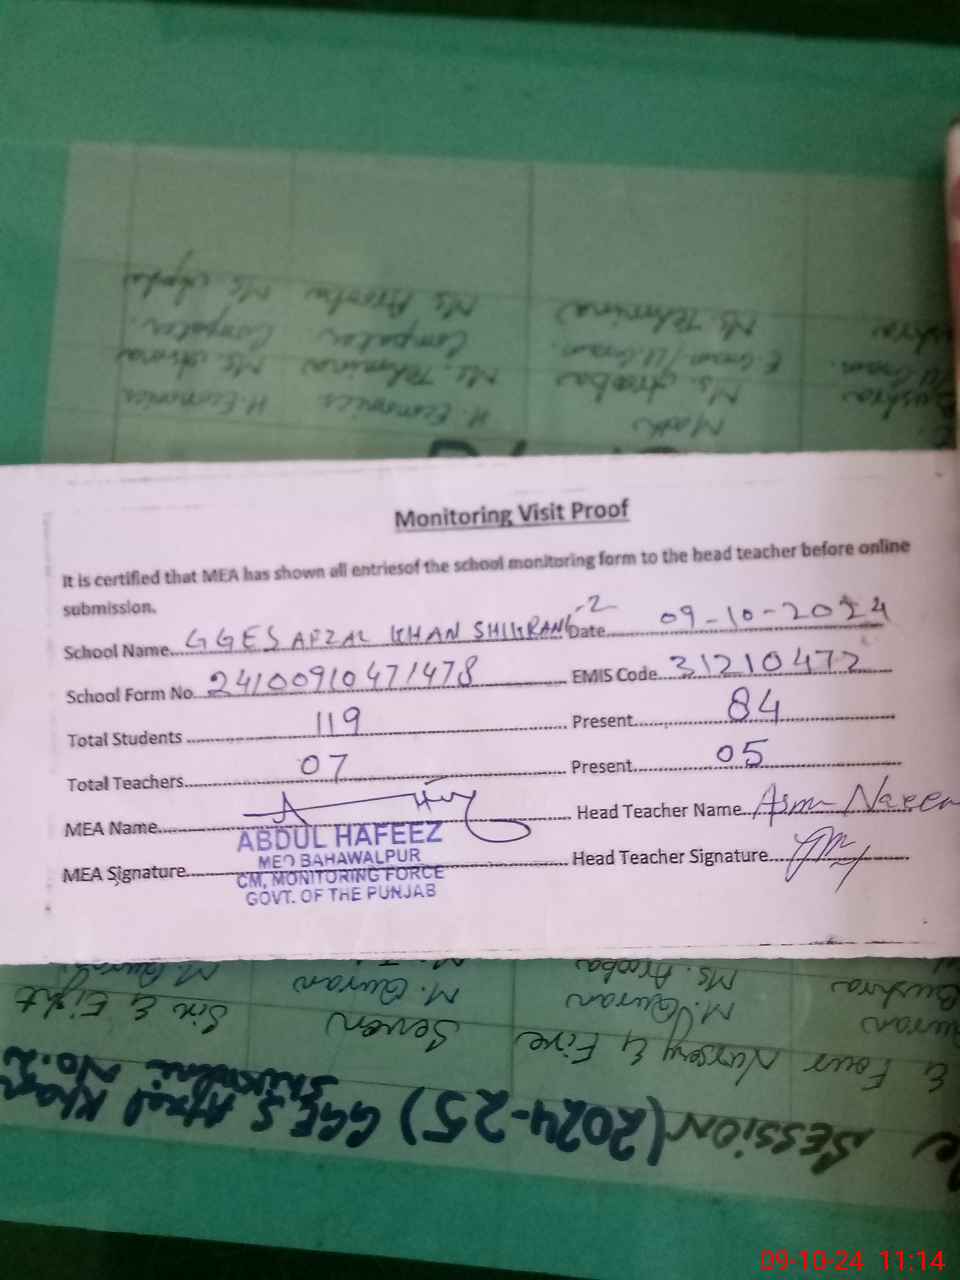 Monitoring Visit Proof
It is certified that MEA has shown all entriesof the school monitoring form to the head teacher before online
submission.
School Name GGES AFZAL KHAN SHIKRANI-2 Date 09-10-2024
School Form No. 24100910471478 EMIS Code 31210472
Total Students 119 Present 84
Total Teachers 07 Present 05
MEA Name Head Teacher Name Asma Nareen
ABDUL HAFEEZ
MEO BAHAWALPUR
MEA Signature Head Teacher Signature
CM, MONITORING FORCE
GOVT. OF THE PUNJAB
SESSION (2024-25) GGES Afzal Khan
Shikrani No.2
& Four Nursery & Five Seven Six & Eight
M. Quran M. Quran
Bushra Ms. Arooba
Math H. Economics H. Economics
Ms. Arooba Ms. Tehmina
E. Gram/U. Gram. Computer. Computer.
Ms. Tehmina Ms. Arooba
09-10-24 11:14